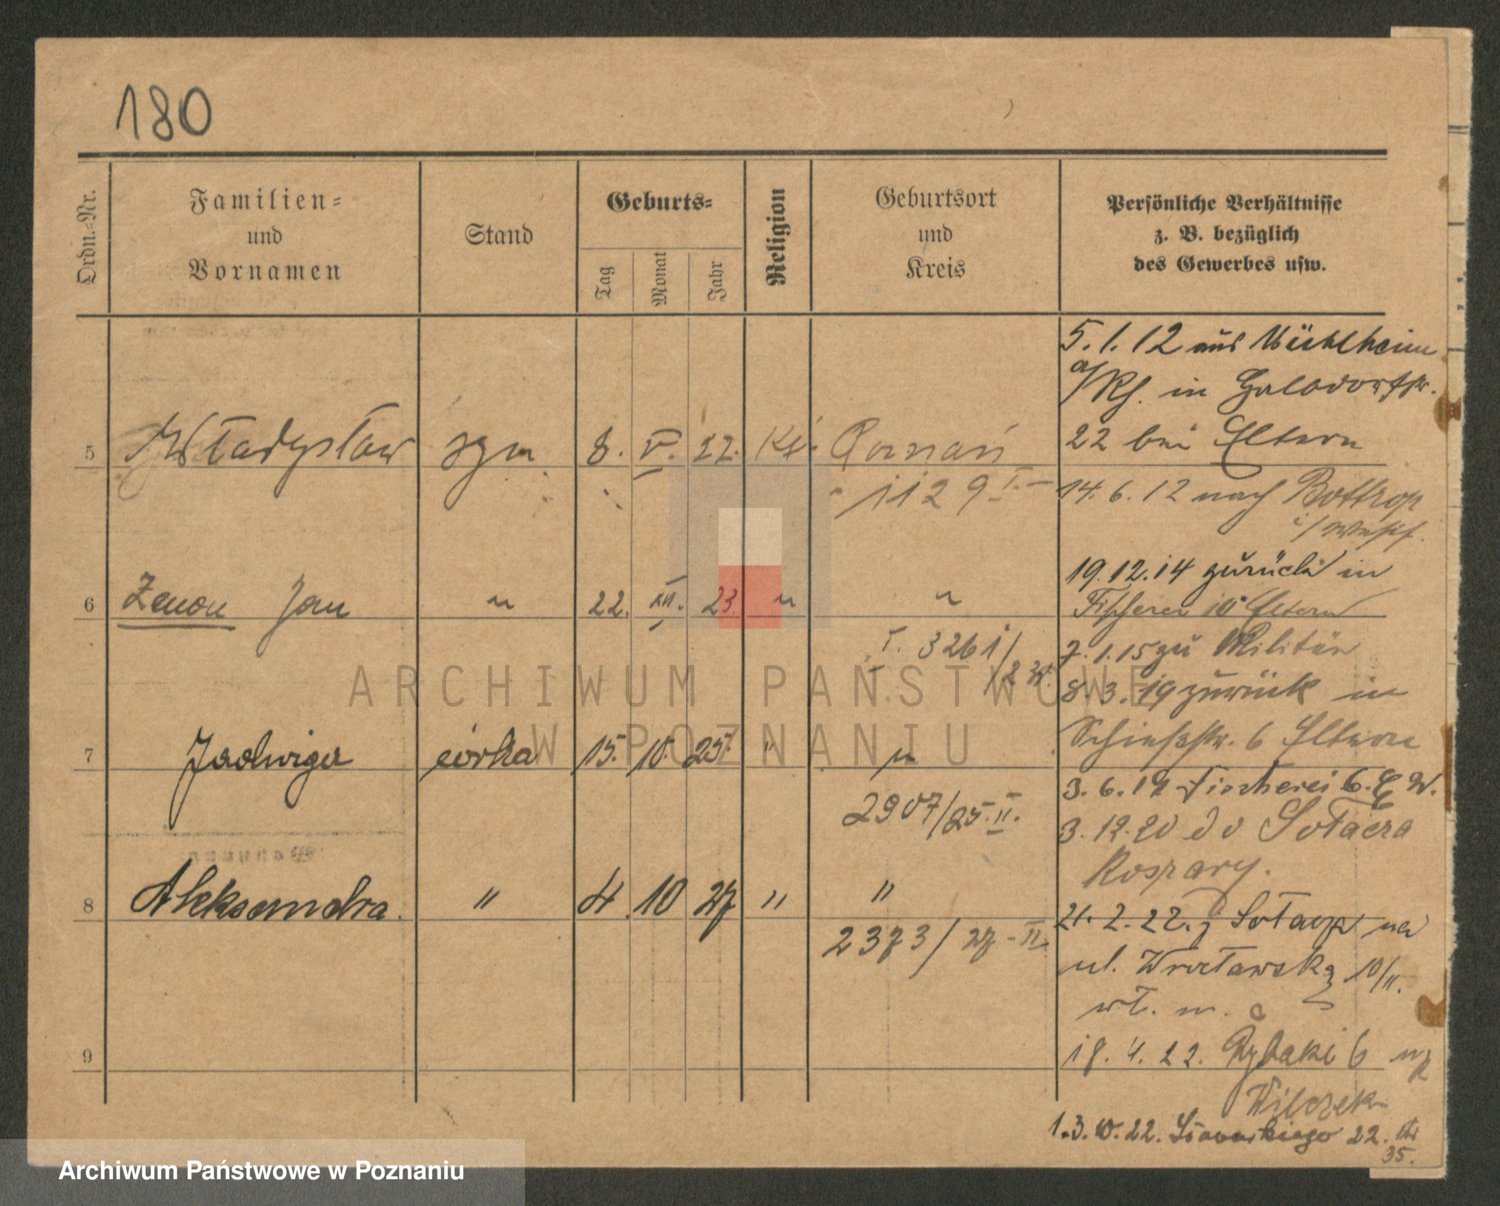 180
Ordn.-Nr.
Familien-
und
Vornamen
Stand
Geburts-
Tag
Monat
Jahr
Religion
Geburtsort
und
Kreis
Persönliche Verhältnisse
z. B. bezüglich
des Gewerbes usw.
5
Władysław
syn
8. V. 22.
Poznań
1129 I.
6
Zenon Jan
"
22. XII. 23.
"
"
I. 3261/2
7
Jadwiga
córka
15. 10. 25.
"
"
2907/25-II.
8
Aleksandra.
"
4. 10 27
"
"
2373/27-II.
9
5. 1. 12 aus Mülheim
a/Rh. in
22 bei Eltern
14. 6. 12 nach Bottrop
i/Westf.
19. 12. 14 zurück in
Fischerei 10 Eltern
7. 1. 15 zu Militär
8. 3. 19 zurück in
Schießstr. 6 Eltern
3. 6. 19 Fischerei 6. E. W.
3. 12. 20 do Sołacza
Koszary.
21. 2. 22. z Sołacza na
ul. Wrocławską 10/II.
wł. m.
18. 4. 22. Rybaki 6
Wilczek
22.
35.
ARCHIWUM PAŃSTWOWE
W POZNANIU
Archiwum Państwowe w Poznaniu